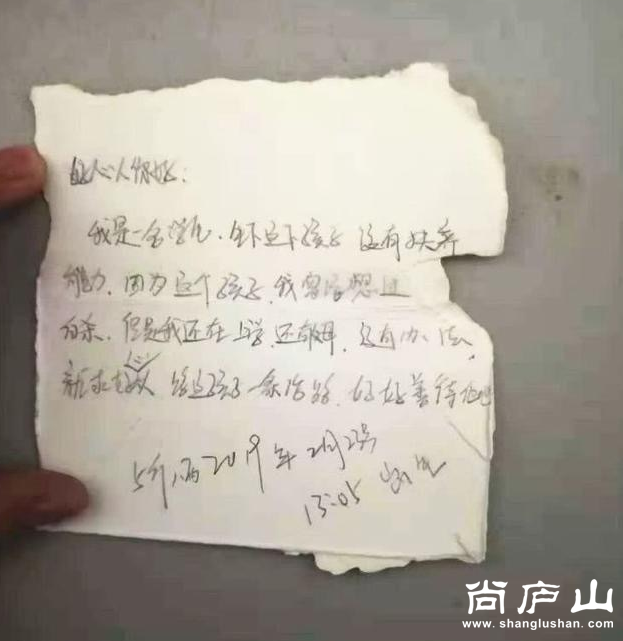 好心人你好:
我是一名学生.生下这个孩子 没有扶养
能力.因为这个孩子.我曾经想过
自杀.但是我还在上学.没有办法.
求好心人 给这孩子一条活路.好好善待他吧
5斤八两 2019年2月2号
13:05 出生
尚庐山
www.shanglushan.com